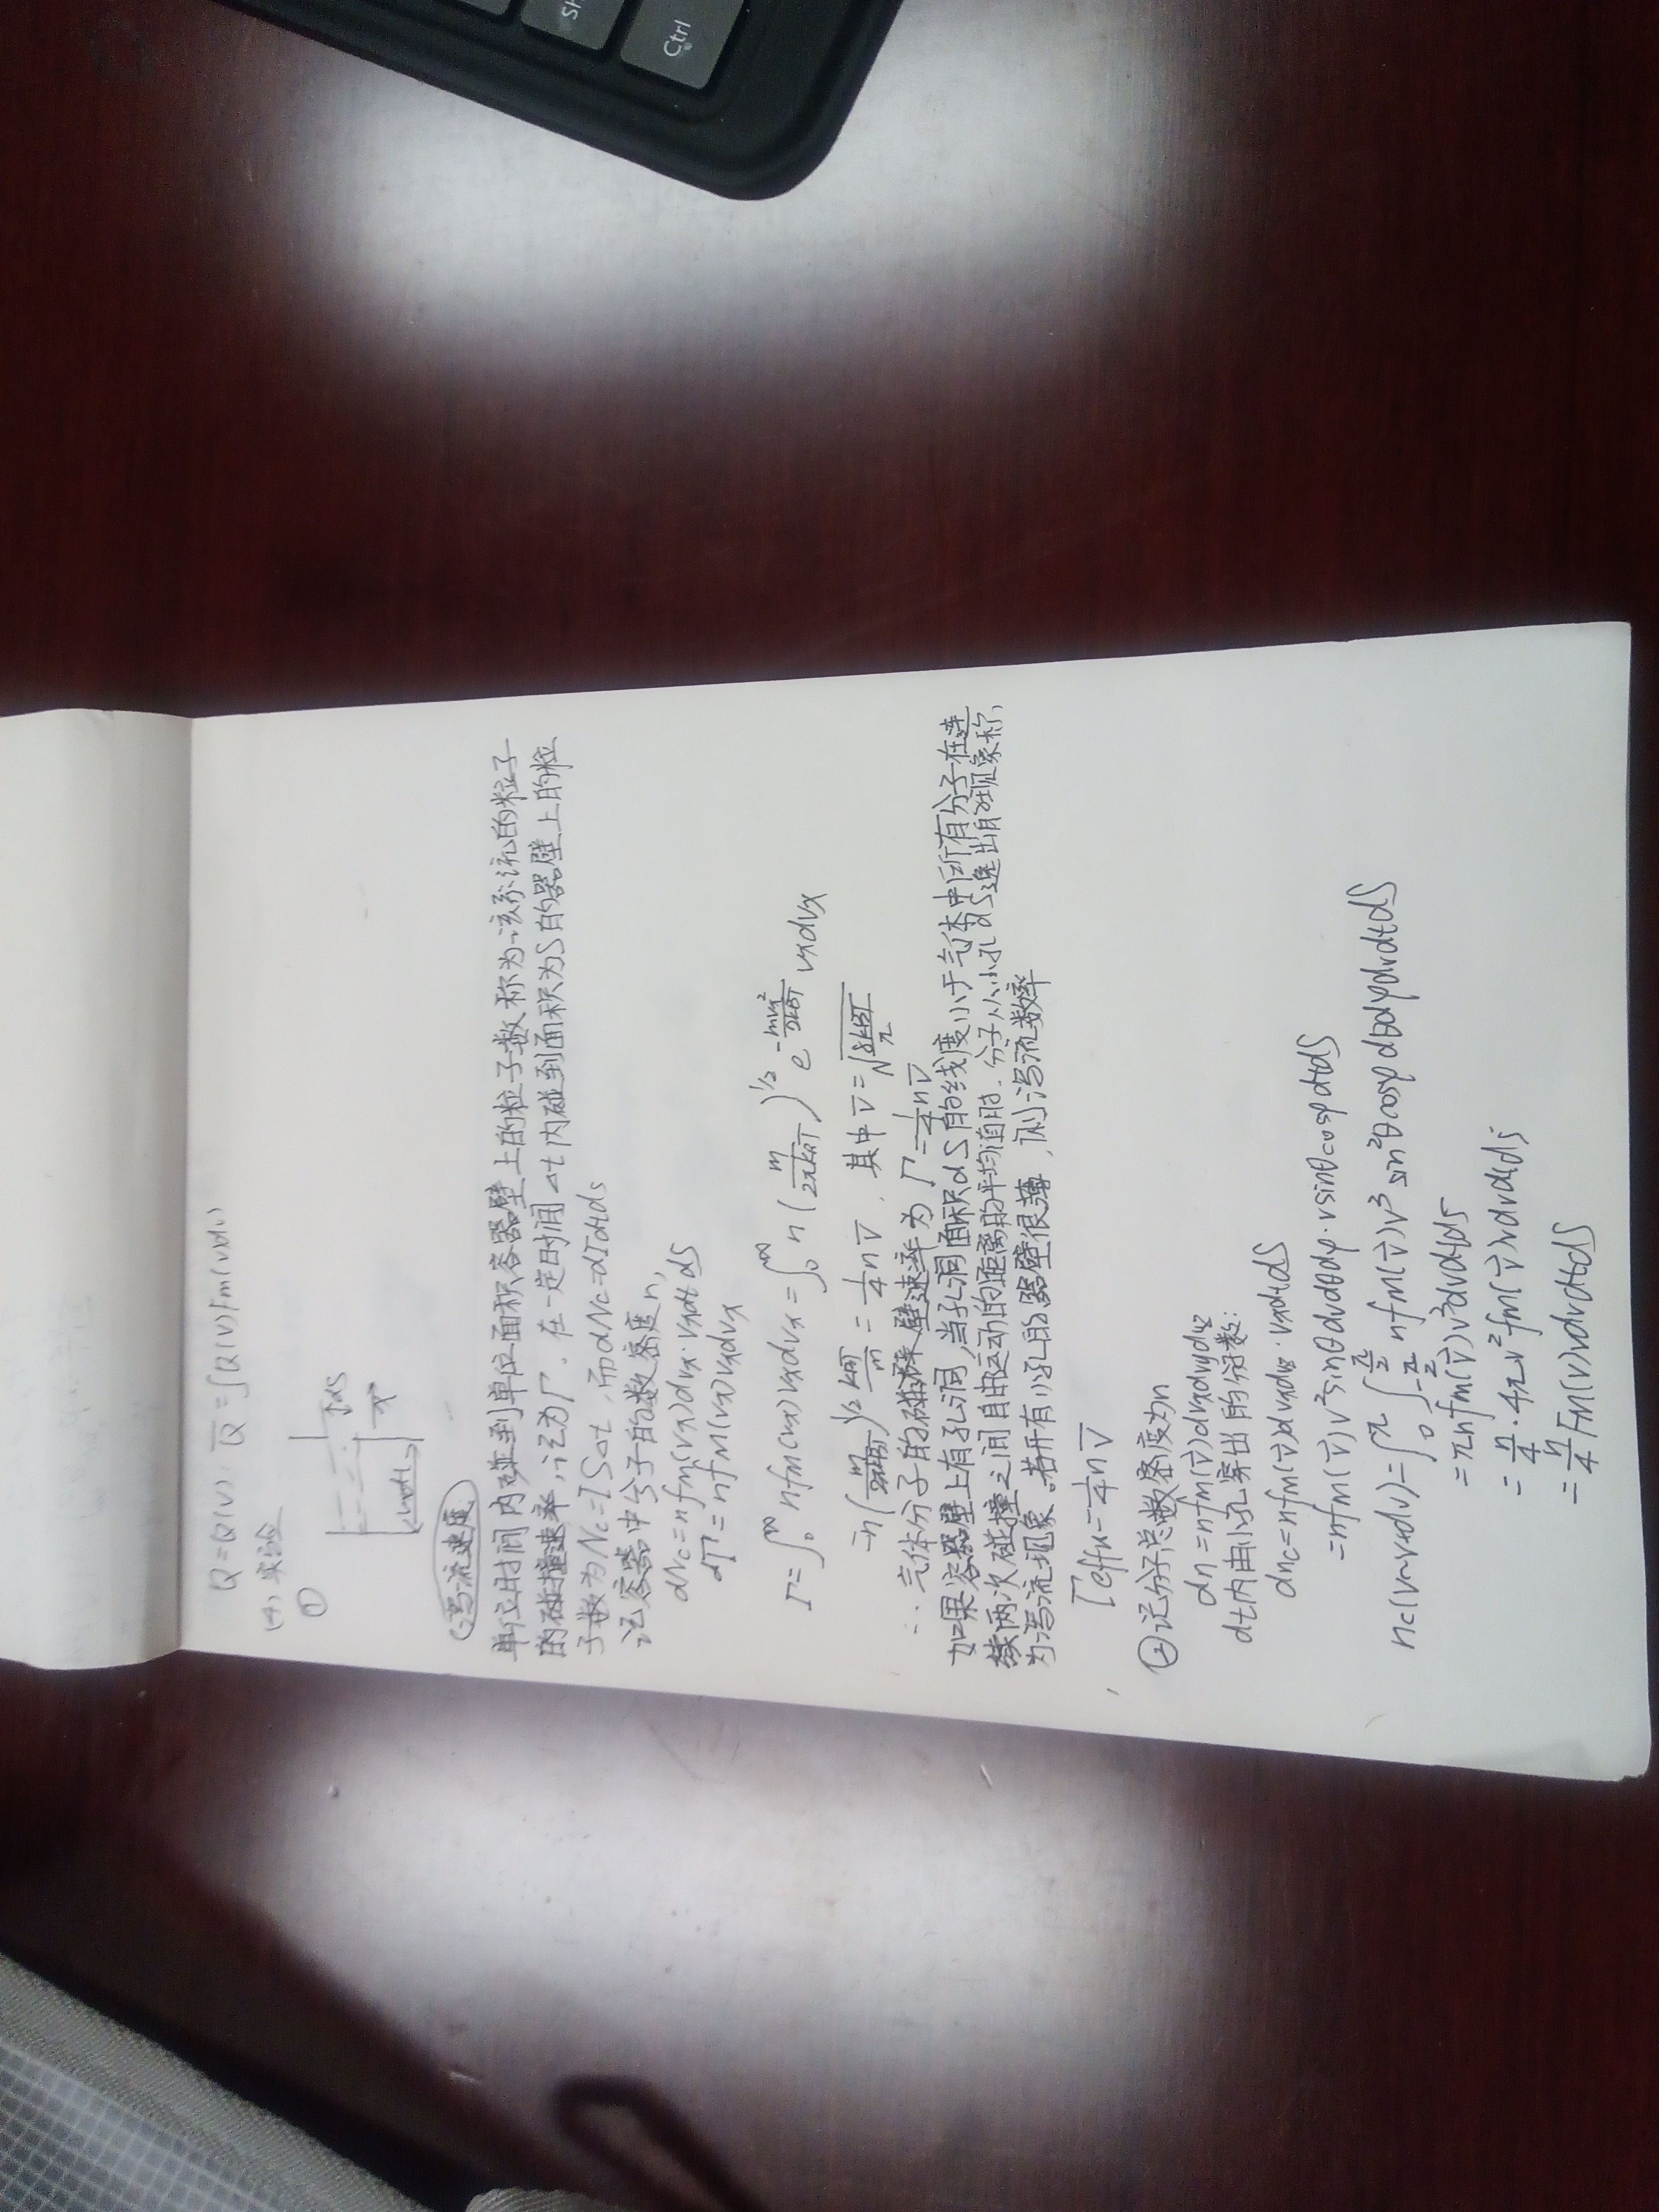 Ctrl
Q=Q(v). Q̄=∫Q(v)Fm(v)dv
(4) 实验
①
ds
x
vxdt
泻流速度
单位时间内碰到单位面积容器壁上的粒子数称为该系统的粒子
的碰撞速率,记为Γ. 在一定时间Δt内碰到面积为S的器壁上的粒
子数为Nc=ΓSΔt, 而dNc=dΓdtds
记容器中分子的数密度n,
dNc=nfm(vx)dvx·vxdt·dS
dΓ=nfM(vx)vxdvx
Γ=∫₀^∞ nfm(vx)vxdvx=∫₀^∞ n(m/2πkBT)^1/2 e^-mvx²/2kBT vxdvx
=n(m/2πkBT)^1/2 kBT/m=1/4 n v̄, 其中v̄=√8kBT/π
∴气体分子的碰壁速率为Γ=1/4 n v̄
如果容器壁上有孔洞,当孔洞面积dS的线度小于气体中所有分子在连
续两次碰撞之间自由运动的距离的平均值时,分子从小孔dS逸出的现象称
为泻流现象.若开有小孔的器壁很薄,则泻流数率
Γeffu=1/4 n v̄
②记分子总数密度为n
dn=nfm(v⃗)dvxdvydvz
dt内由小孔穿出的分子数:
dnc=nfm(v⃗)dvxdvz·vxdtdS
=nfm(v⃗)v²sinθdvdθdφ·vsinθcosφdtdS
nc(v~v+dv)=∫₀^π∫_-π/2^π/2 nfm(v⃗)v³sin²θcosφdθdφdvdtdS
=πnfm(v⃗)v³dvdtdS
=n/4·4πv²fm(v⃗)vdvdtdS
=n/4 Fm(v)vdvdtdS